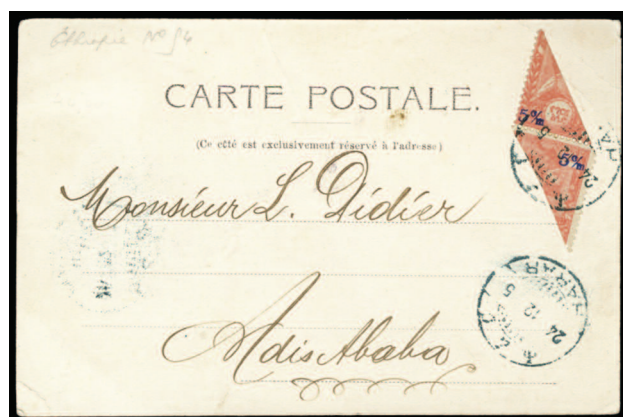 Ethiopie No 54
CARTE POSTALE.
(Ce côté est exclusivement réservé à l'adresse)
5‰
5‰
Monsieur L. Didier
Adis Ababa
HARAR
24 12 5